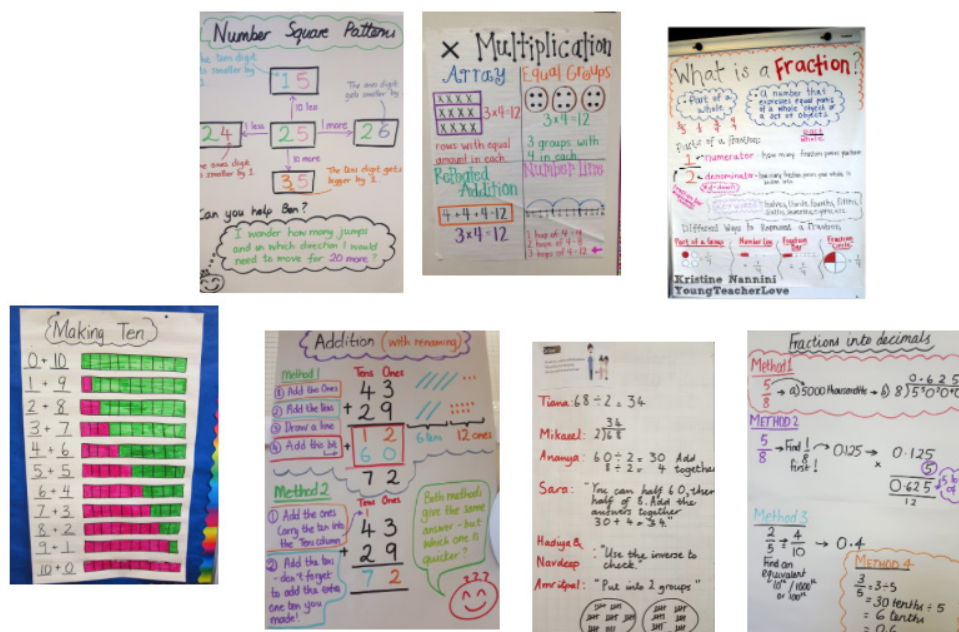 Number Square Patterns
The tens digit
is smaller by
1.
15
The ones digit
gets smaller by
1.
10 less
24
1 less
25
1 more
26
10 more
The ones digit
is smaller by 1.
35
The tens digit gets
bigger by 1.
Can you help Ben?
I wonder how many jumps
and in which direction I would
need to move for 20 more?
× Multiplication
Array
XXXX
XXXX
XXXX
3×4=12
rows with equal
amount in each
Equal Groups
3×4=12
3 groups with
4 in each
Repeated
Addition
4+4+4=12
3×4=12
Number Line
1 hop of 4=4
2 hops of 4=8
3 hops of 4=12
What is a Fraction?
Part of a
whole
A number that
expresses equal parts
of a whole object or
a set of objects
part
whole
Parts of a fraction
1 numerator - how many
2 denominator
halves, thirds, fourths, fifths,
Different Ways to Represent a Fraction
Part of a Group
Number Line
Fraction
Bar
Fraction
Circle
Kristine Nannini
YoungTeacherLove
Making Ten
0 + 10
1 + 9
2 + 8
3 + 7
4 + 6
5 + 5
6 + 4
7 + 3
8 + 2
9 + 1
10 + 0
Addition (with renaming)
Method 1
① Add the Ones
② Add the tens
③ Draw a line
④ Add this bit
Tens Ones
43
+ 29
12
+ 60
72
6 tens
12 ones
Method 2
① Add the ones
Carry the ten into
the Tens column
② Add the tens
- don't forget
to add the extra
one ten you
made!
Tens Ones
1
43
+ 29
72
Both methods
give the same
answer - but
which one is
quicker?
???
Tiana: 68 ÷ 2 = 34
34
Mikaeel: 2)68
Ananya: 60÷2 = 30 Add
8÷2 = 4 together
Sara: "You can half 60, then
half of 8. Add the
answers together
30 + 4 = 34."
Hadiya &
Navdeep : "Use the inverse to
check."
Amritpal: "Put into 2 groups"
Fractions into decimals
Method 1
5
8
→ a) 5000 thousandths → b)
0.625
METHOD 2
5
8
→ Find 1/8
first!
0.125 →
0.125
× 5
0.625
12
Method 3
2/5 = 4/10 → 0.4
Find an
equivalent
10th / 1000th
or 100th
METHOD 4
3/5 = 3÷5
= 30 tenths ÷ 5
= 6 tenths
= 0.6